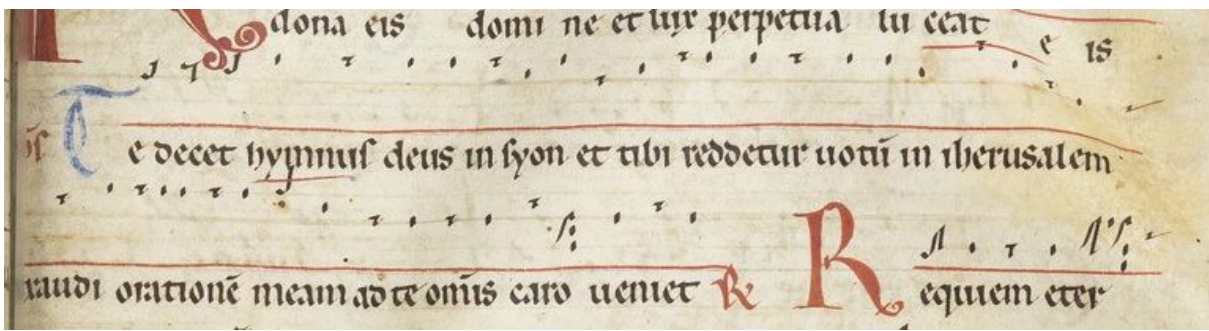 dona eis domi ne et lux perpetua lu ceat e is
Te decet hypnus deus in syon et tibi reddetur uotū in iherusalem
xaudi orationē meam ad te om̄is caro ueniet R̷ Requiem eter